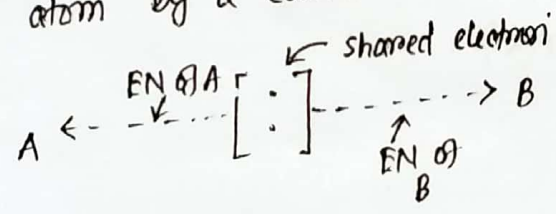 atom by a
shared electron
EN of A
A [ : ] B
EN of
B